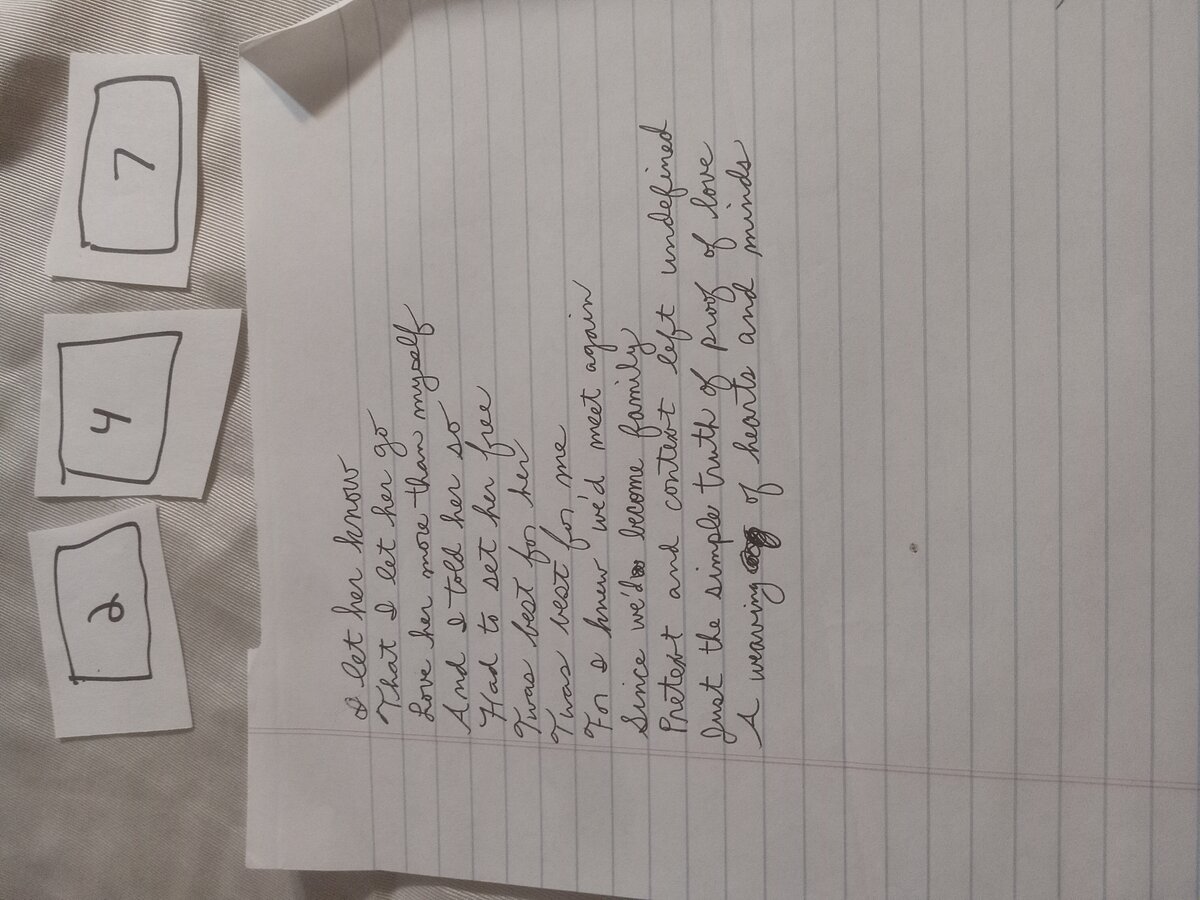 2
4
7
I let her know
That I let her go
Love her more than myself
And I told her so
Had to set her free
Twas best for her
Twas best for me
For I knew we'd meet again
Since we'd become family
Pretext and context left undefined
Just the simple truth of proof of love
A weaving of hearts and minds